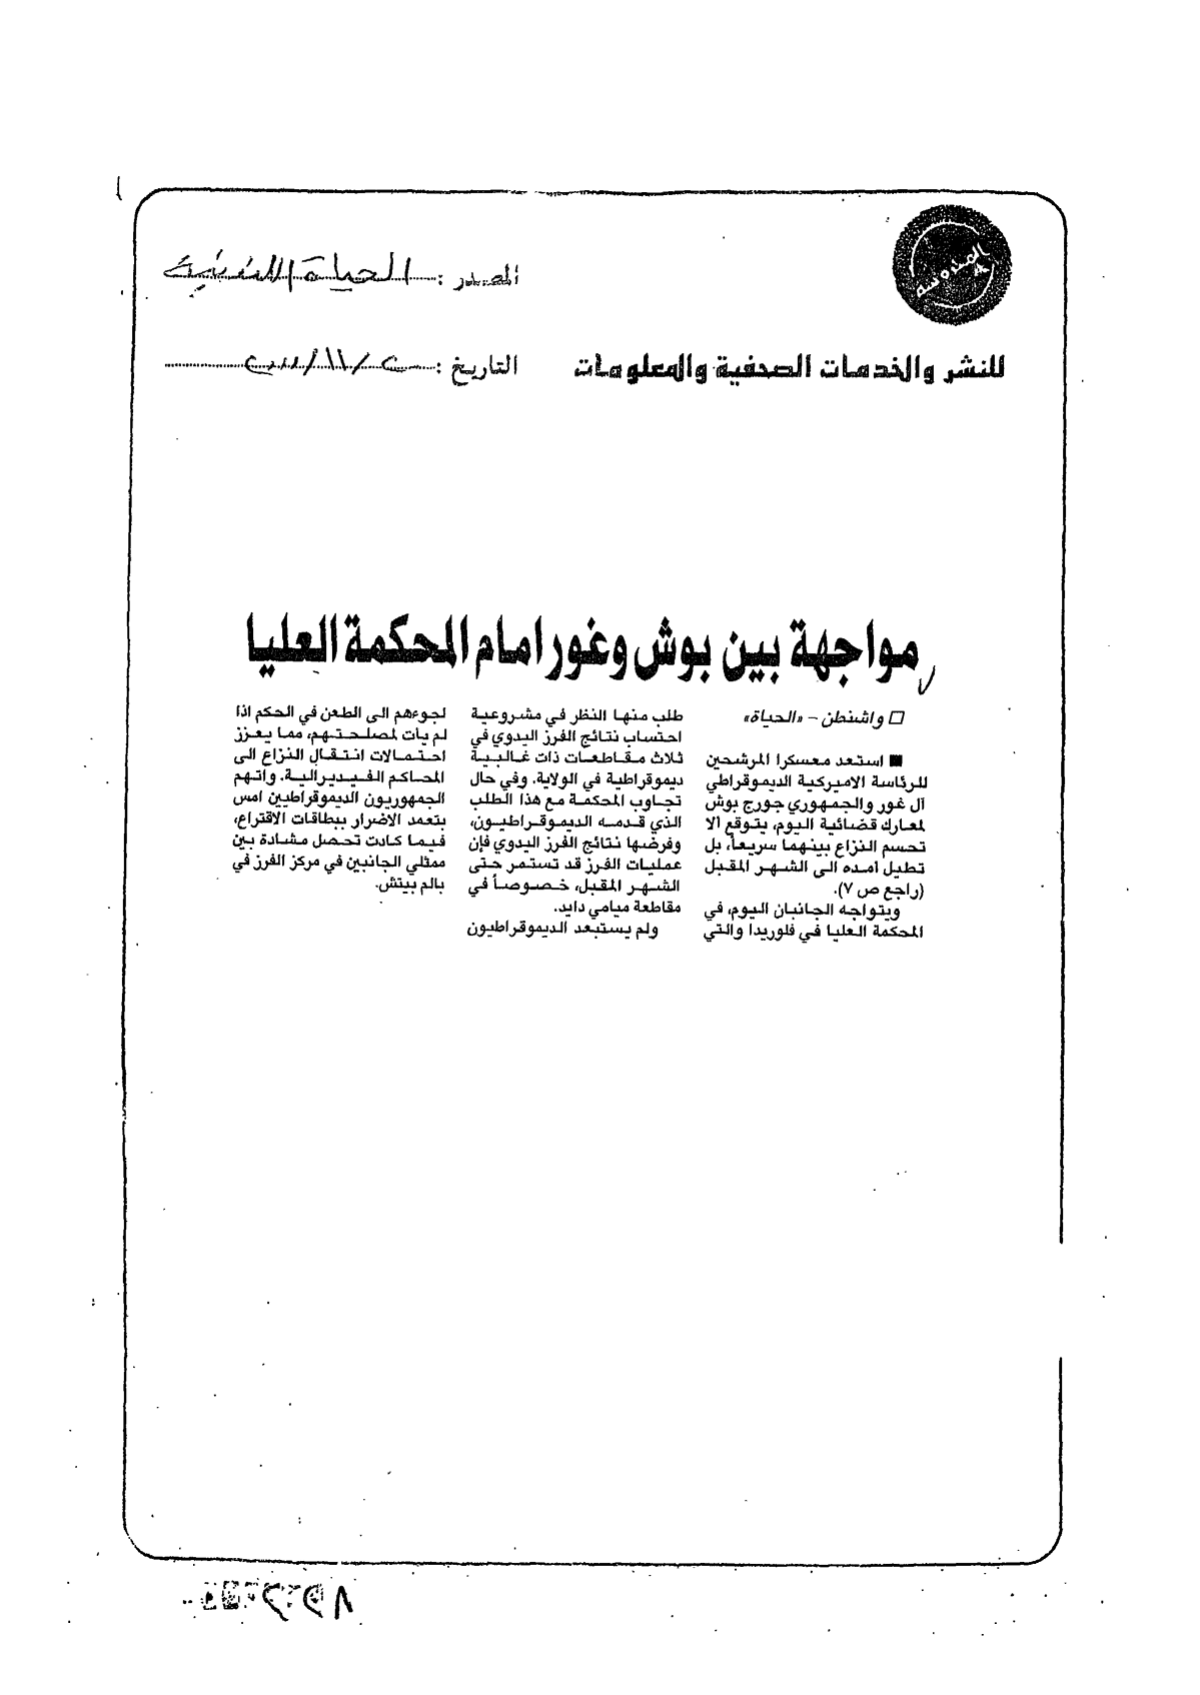 المصدر : الحياة اللندنية
للنشر والخدمات الصحفية والمعلومات
التاريخ :
مواجهة بين بوش وغور امام المحكمة العليا
□ واشنطن – «الحياة»
■ استعد معسكرا المرشحين
للرئاسة الاميركية الديموقراطي
آل غور والجمهوري جورج بوش
لمعارك قضائية اليوم، يتوقع الا
تحسم النزاع بينهما سريعاً، بل
تطيل أمده الى الشهر المقبل
(راجع ص ٧).
ويتواجه الجانبان اليوم، في
المحكمة العليا في فلوريدا والتي
طلب منها النظر في مشروعية
احتساب نتائج الفرز اليدوي في
ثلاث مقاطعات ذات غالبية
ديموقراطية في الولاية. وفي حال
تجاوب المحكمة مع هذا الطلب
الذي قدمه الديموقراطيون،
وفرضها نتائج الفرز اليدوي فإن
عمليات الفرز قد تستمر حتى
الشهر المقبل، خصوصاً في
مقاطعة ميامي دايد.
ولم يستبعد الديموقراطيون
لجوءهم الى الطعن في الحكم اذا
لم يأت لمصلحتهم، مما يعزز
احتمالات انتقال النزاع الى
المحاكم الفيديرالية. واتهم
الجمهوريون الديموقراطيين امس
بتعمد الاضرار ببطاقات الاقتراع،
فيما كادت تحصل مشادة بين
ممثلي الجانبين في مركز الفرز في
بالم بيتش.